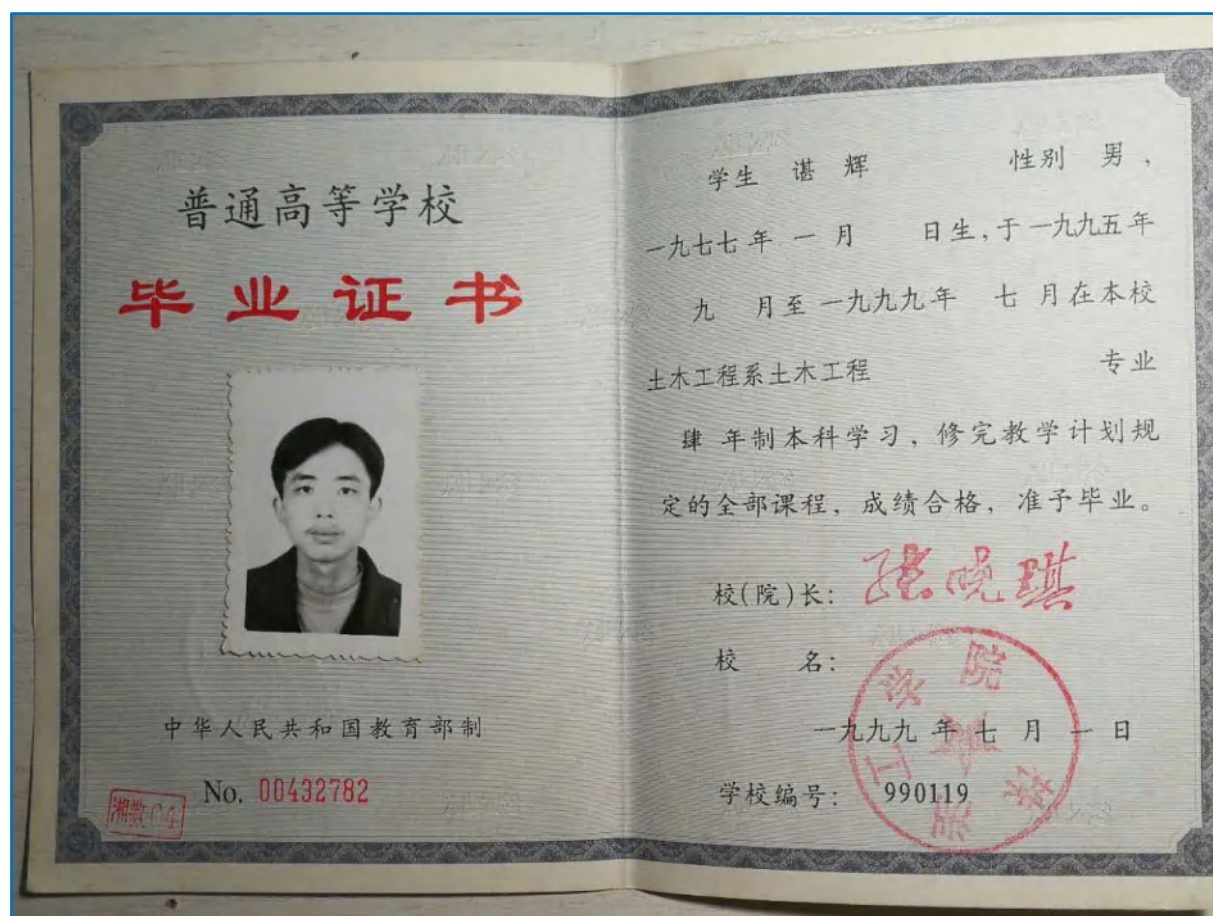 普通高等学校
毕业证书
中华人民共和国教育部制
No. 00432782
湘教04
学生 谌 辉 性别 男,
一九七七年 一 月 日生,于一九九五年
九 月至一九九九年 七 月在本校
土木工程系土木工程 专业
肆 年制本科学习,修完教学计划规
定的全部课程,成绩合格,准予毕业。
校(院)长: 张晓琪
校 名:
工学院
一九九九 年 七 月 一 日
学校编号: 990119